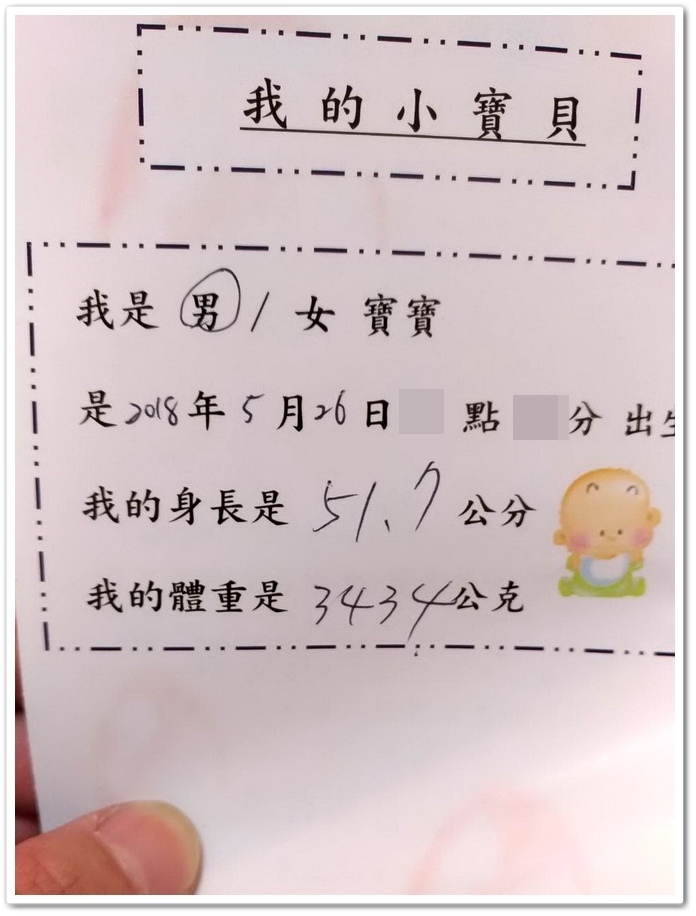 我的小寶貝
我是 男 / 女 寶寶
是2018年5月26日 點 分 出生
我的身長是 51.7 公分
我的體重是 3434公克